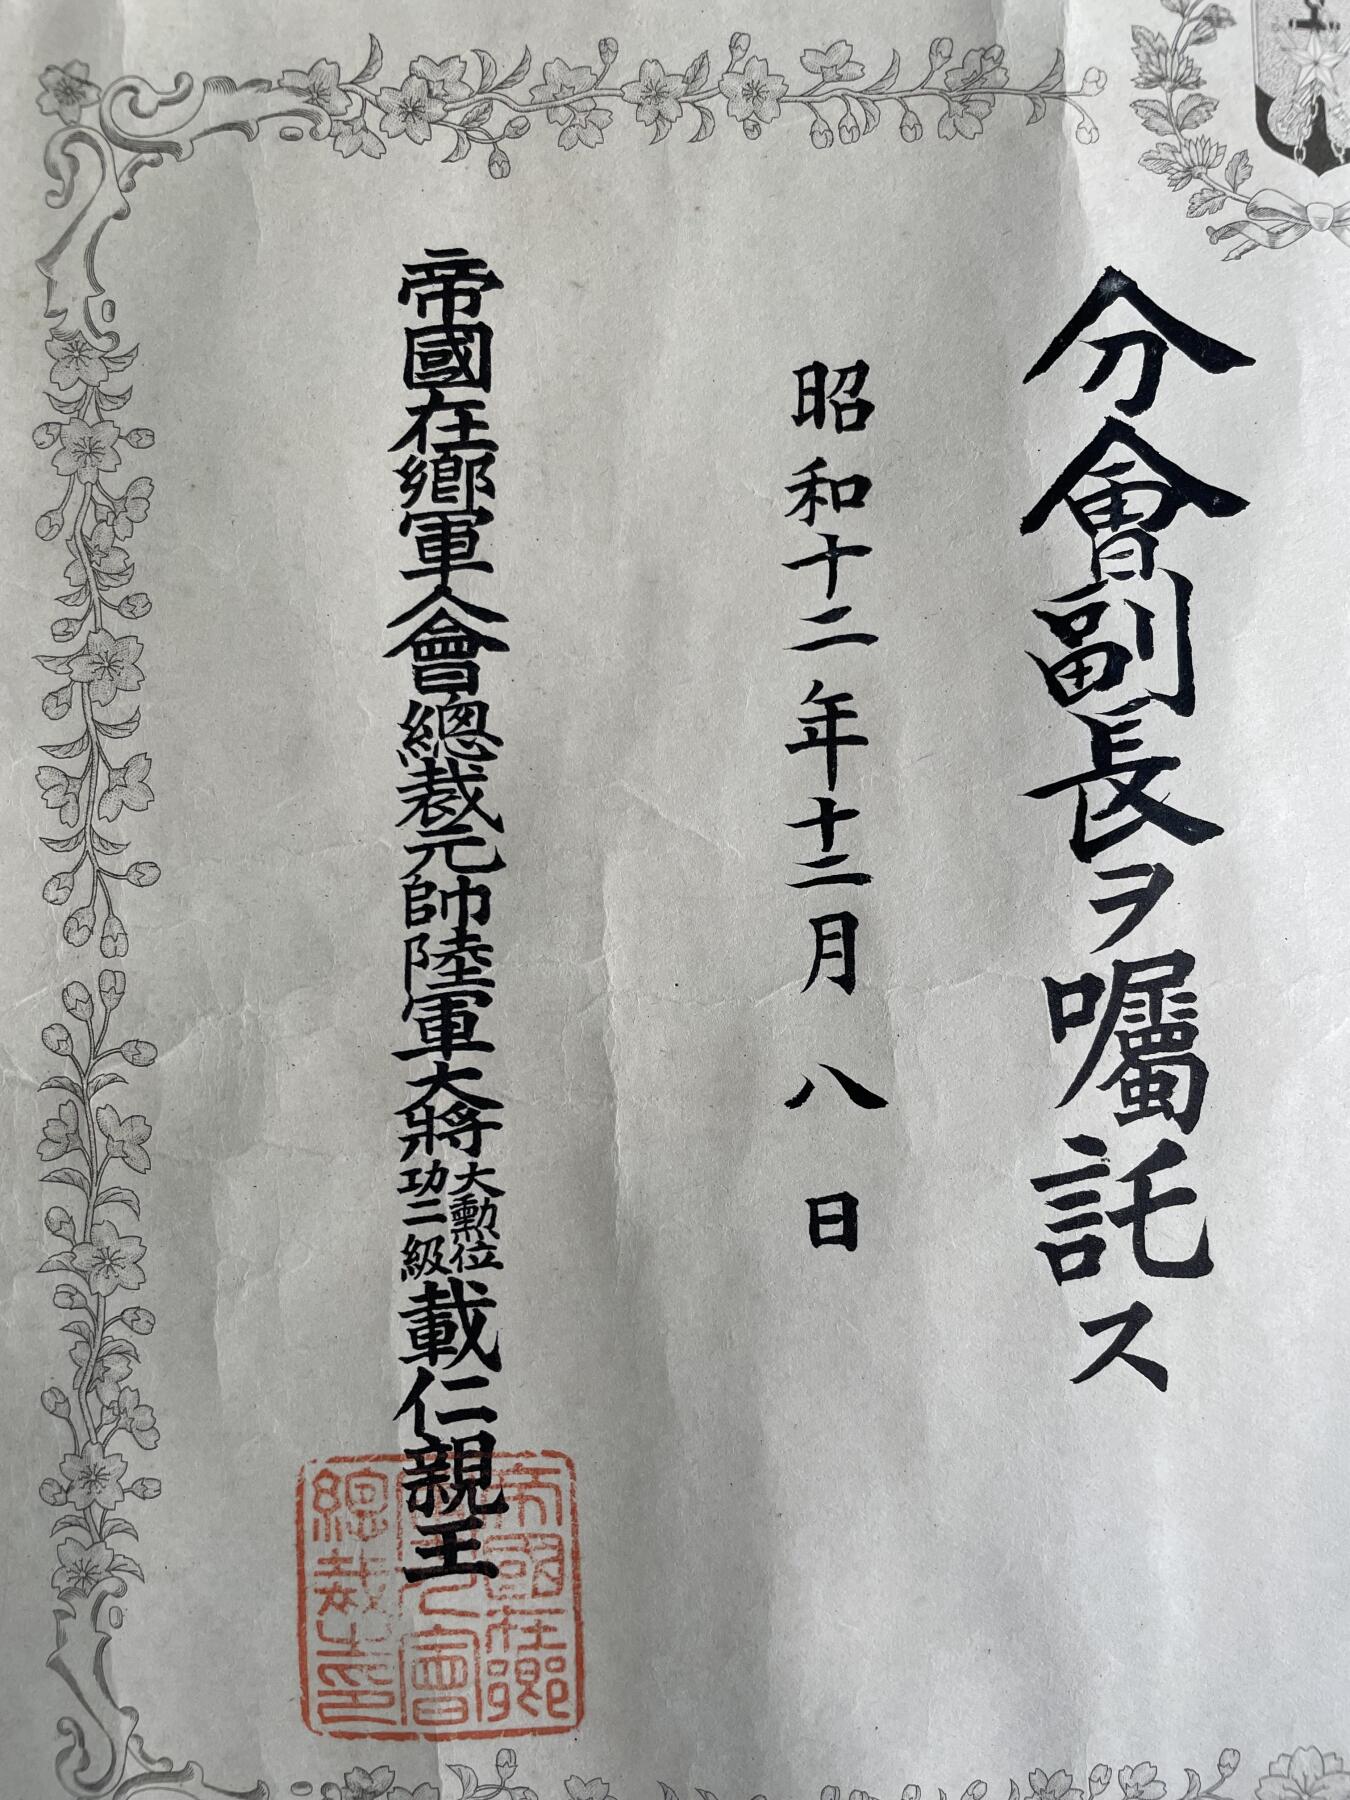 分會副長ヲ囑託ス
昭和十二年十二月八日
帝國在鄕軍人會總裁元帥陸軍大將大勳位功二級載仁親王
帝國在鄕
軍人會
總裁之印